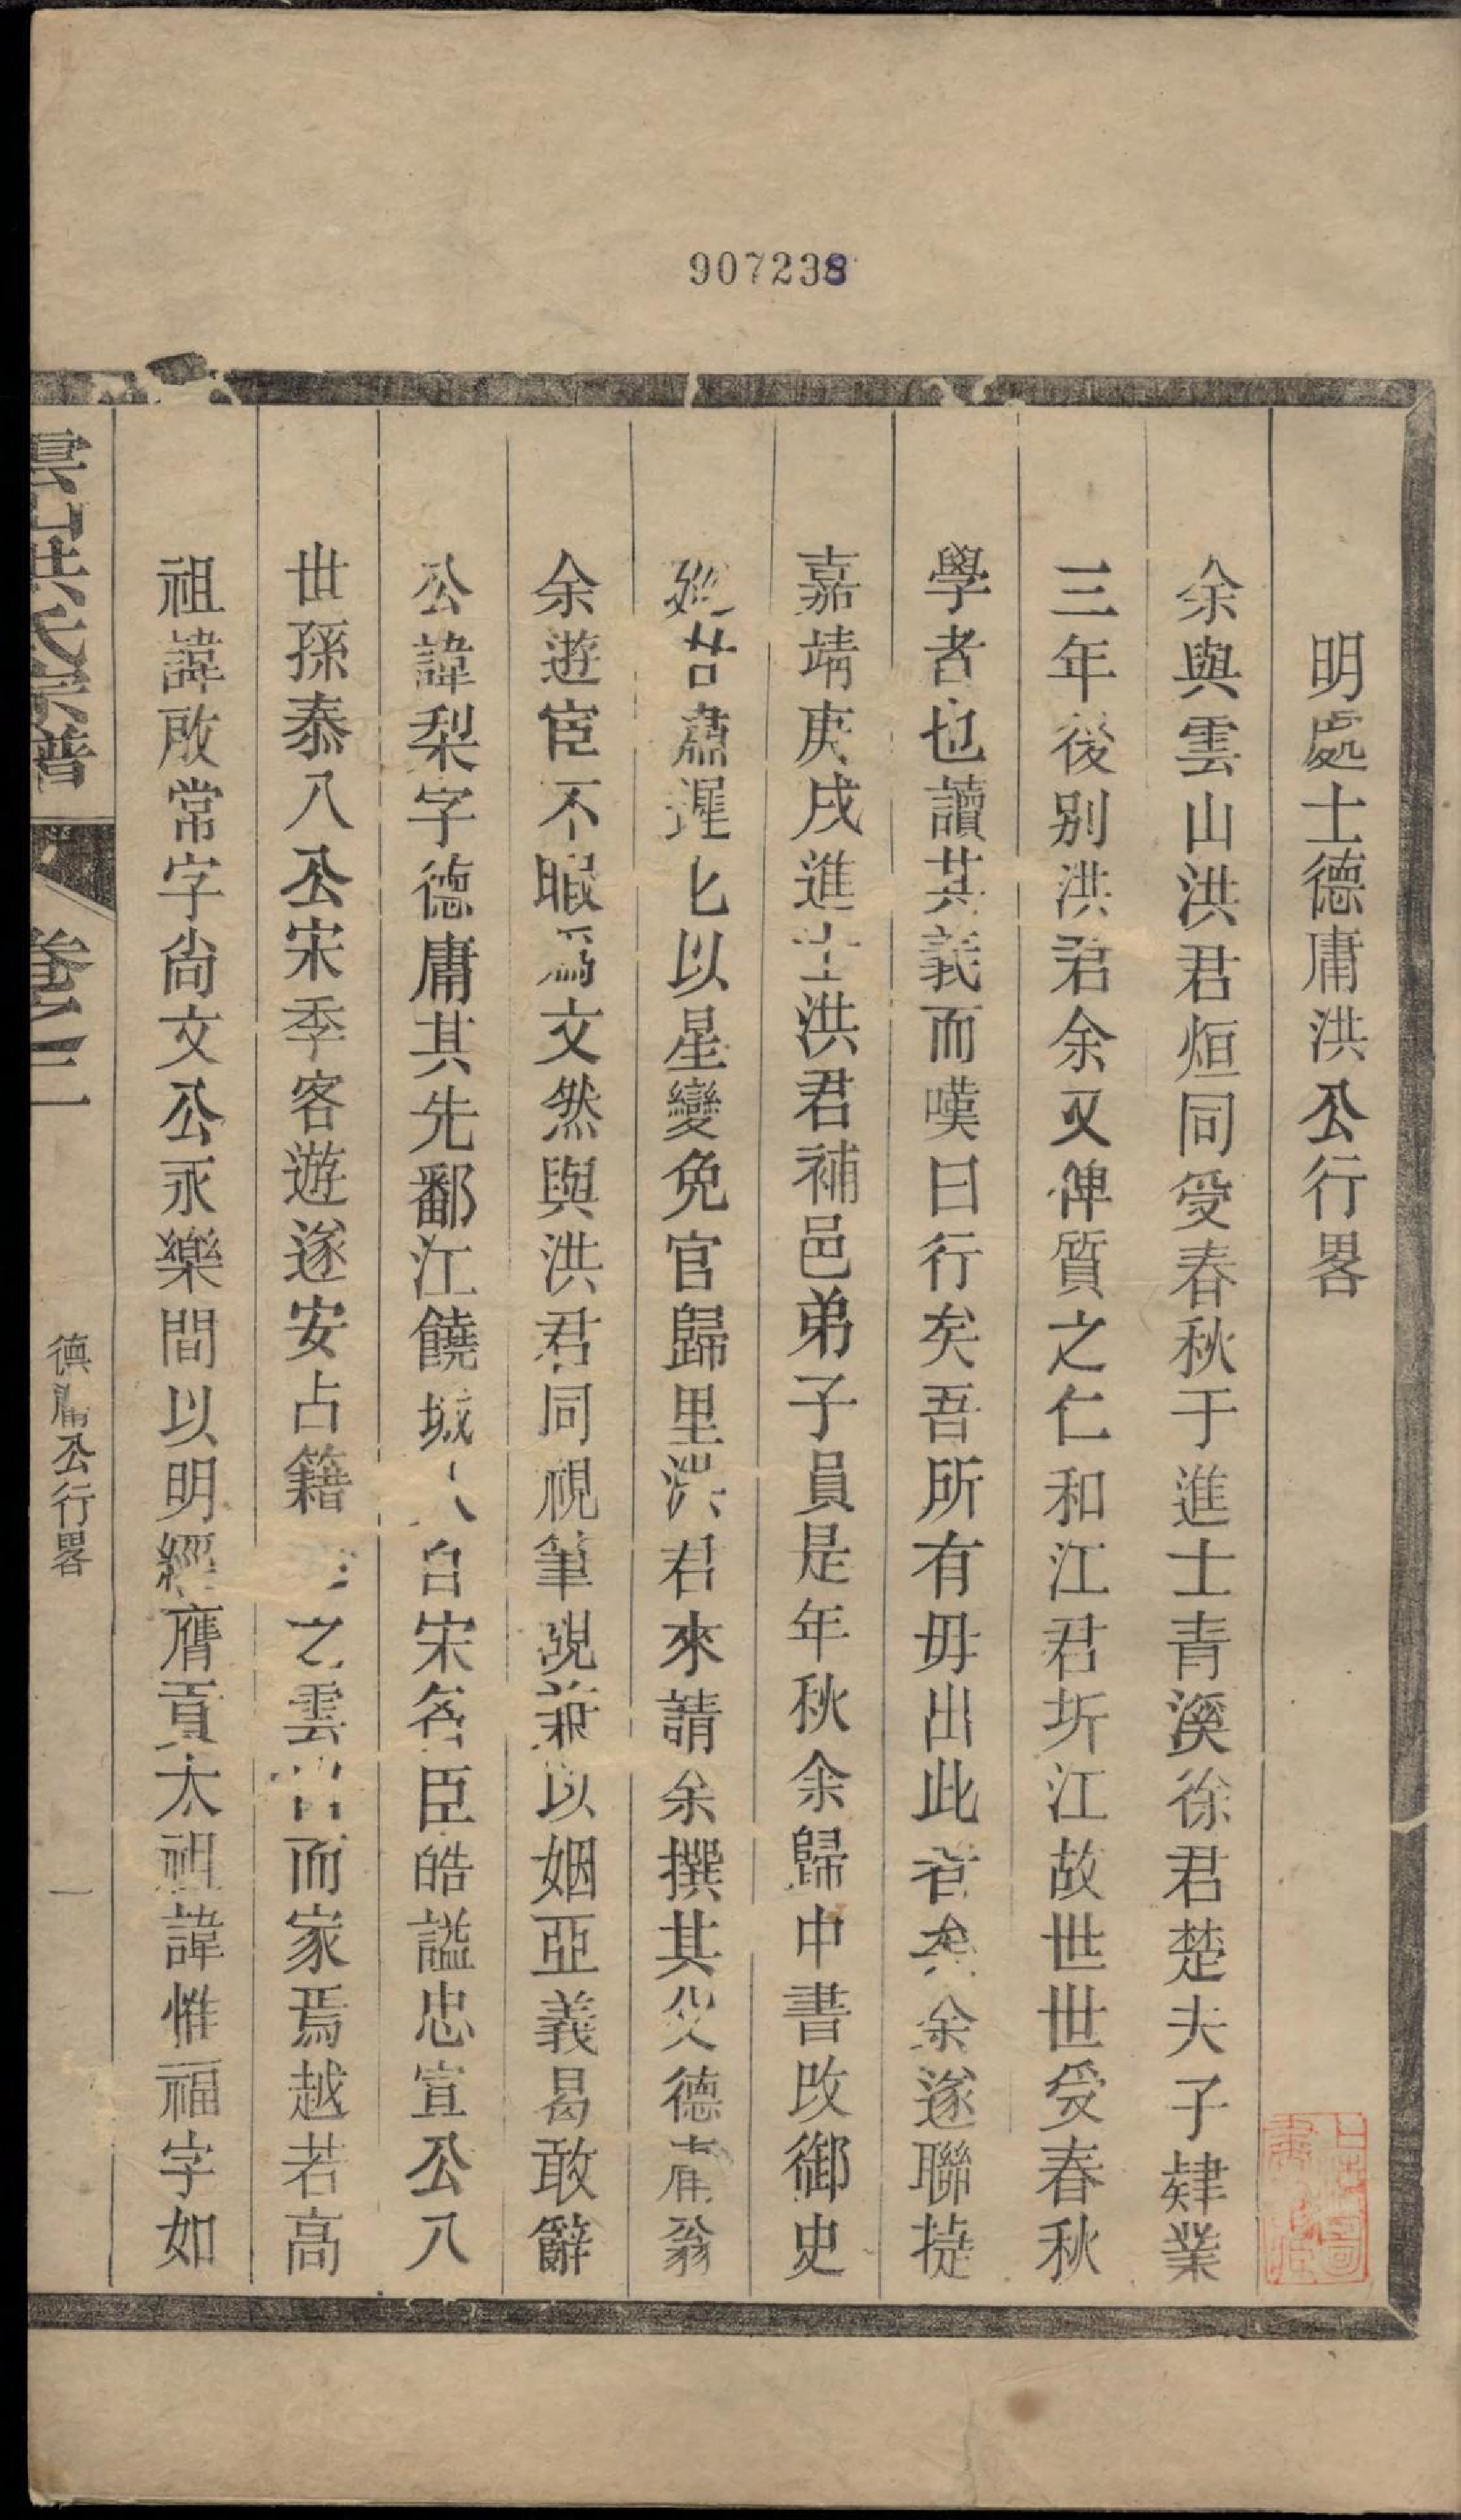 907238
明處士德庸洪公行畧
余與雲山洪君烜同受春秋于進士青溪徐君楚夫子肄業
三年後别洪君余又俾質之仁和江君圻江故世世受春秋
學者也讀其義而嘆曰行矣吾所有毋出此者矣余遂聯㨗
嘉靖庚戌進士洪君補邑弟子員是年秋余歸中書改御史
以星變免官歸里洪君來請余撰其父德庸翁
余遊宦不暇爲文然與洪君同視筆硯兼以姻亞義曷敢辭
公諱梨字德庸其先鄱江饒城人自宋名臣皓謚忠宣公八
世孫泰八公宋季客遊遂安占籍之雲而家焉越若高
祖諱啟常字尙文公永樂間以明經膺貢太祖諱惟福字如
雲山洪氏宗譜
卷之二
德庸公行畧
一